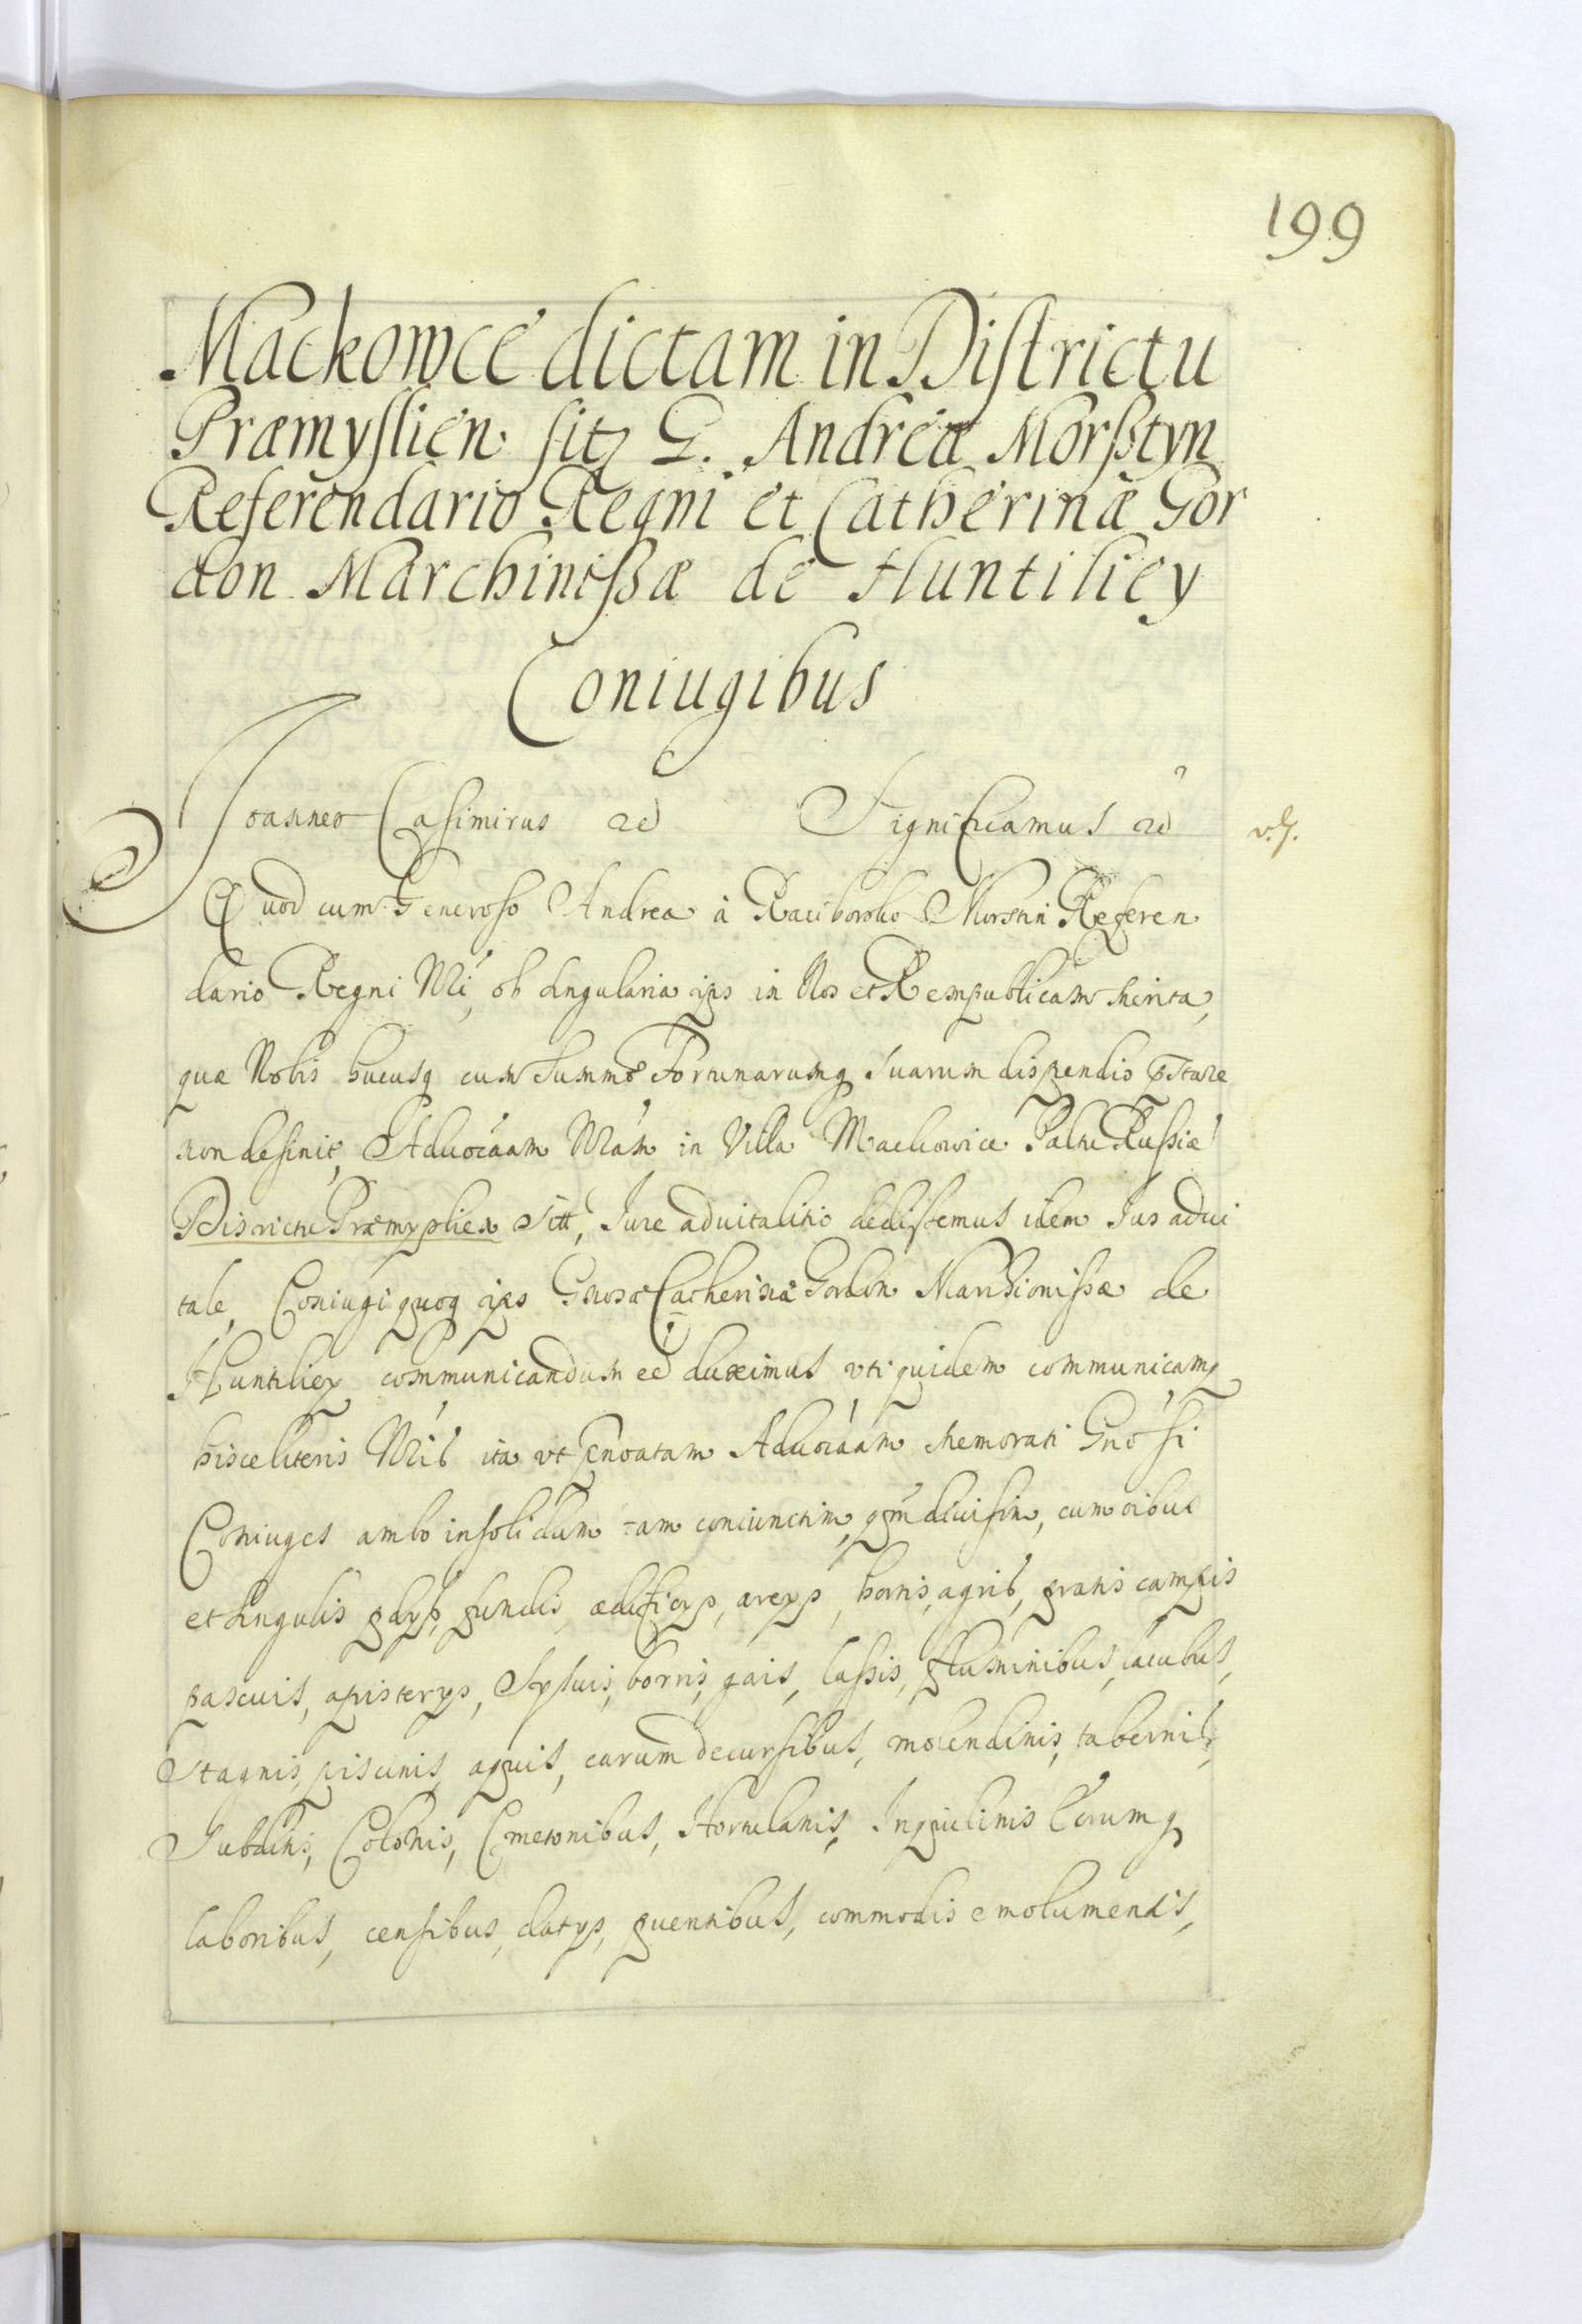 199
Mackowce dictam in Districtu
Præmyslien sitz G. Andreæ Morsztyn
Referendario Regni et Catherinæ Gor
don Marchinißæ de Huntiliey
Coniugibus
Joannes Casimirus ad Significamus ad
v. s.
Quod cum Generoso Andrea à Raciborsko Morstin Referen
dario Regni Nri, ob singularia ips in Nos et Rempublicam merita,
quæ Nobis hucusq cum summo Fortunarumq suarum dispendio pstare
non desinit, Aduocāam Nram in Villa Mackowice Palnu Russiæ
Districtu Præmyslien sitt, Jure aduitalitio dedissemus idem Jus adui
tale, Coniugi quoq ips Gnosæ Catherinæ Gordon Marchionissæ de
Huntiliey communicandum ee duximus vti quidem communicamq
hisce literis Nris ita vt pnoatam Aduocāam memorati Gnosi
Coniuges ambo insolidum tam coniunctim, qm diuisim, cum oibus
et singulis pdijs, fundis, ædificijs, areijs, hortis, agris, pratis campis
pascuis, apisterijs, Syluis, borris, gais, lassis, fluminibus, lacubus,
Stagnis, piscinis, aquis, earum decursibus, molendinis, tabernis,
Subditis, Colonis, Cmetonibus, Hortulanis, Inquilinis Eorumq
laboribus, censibus, datijs, puentibus, commodis emolumentis,